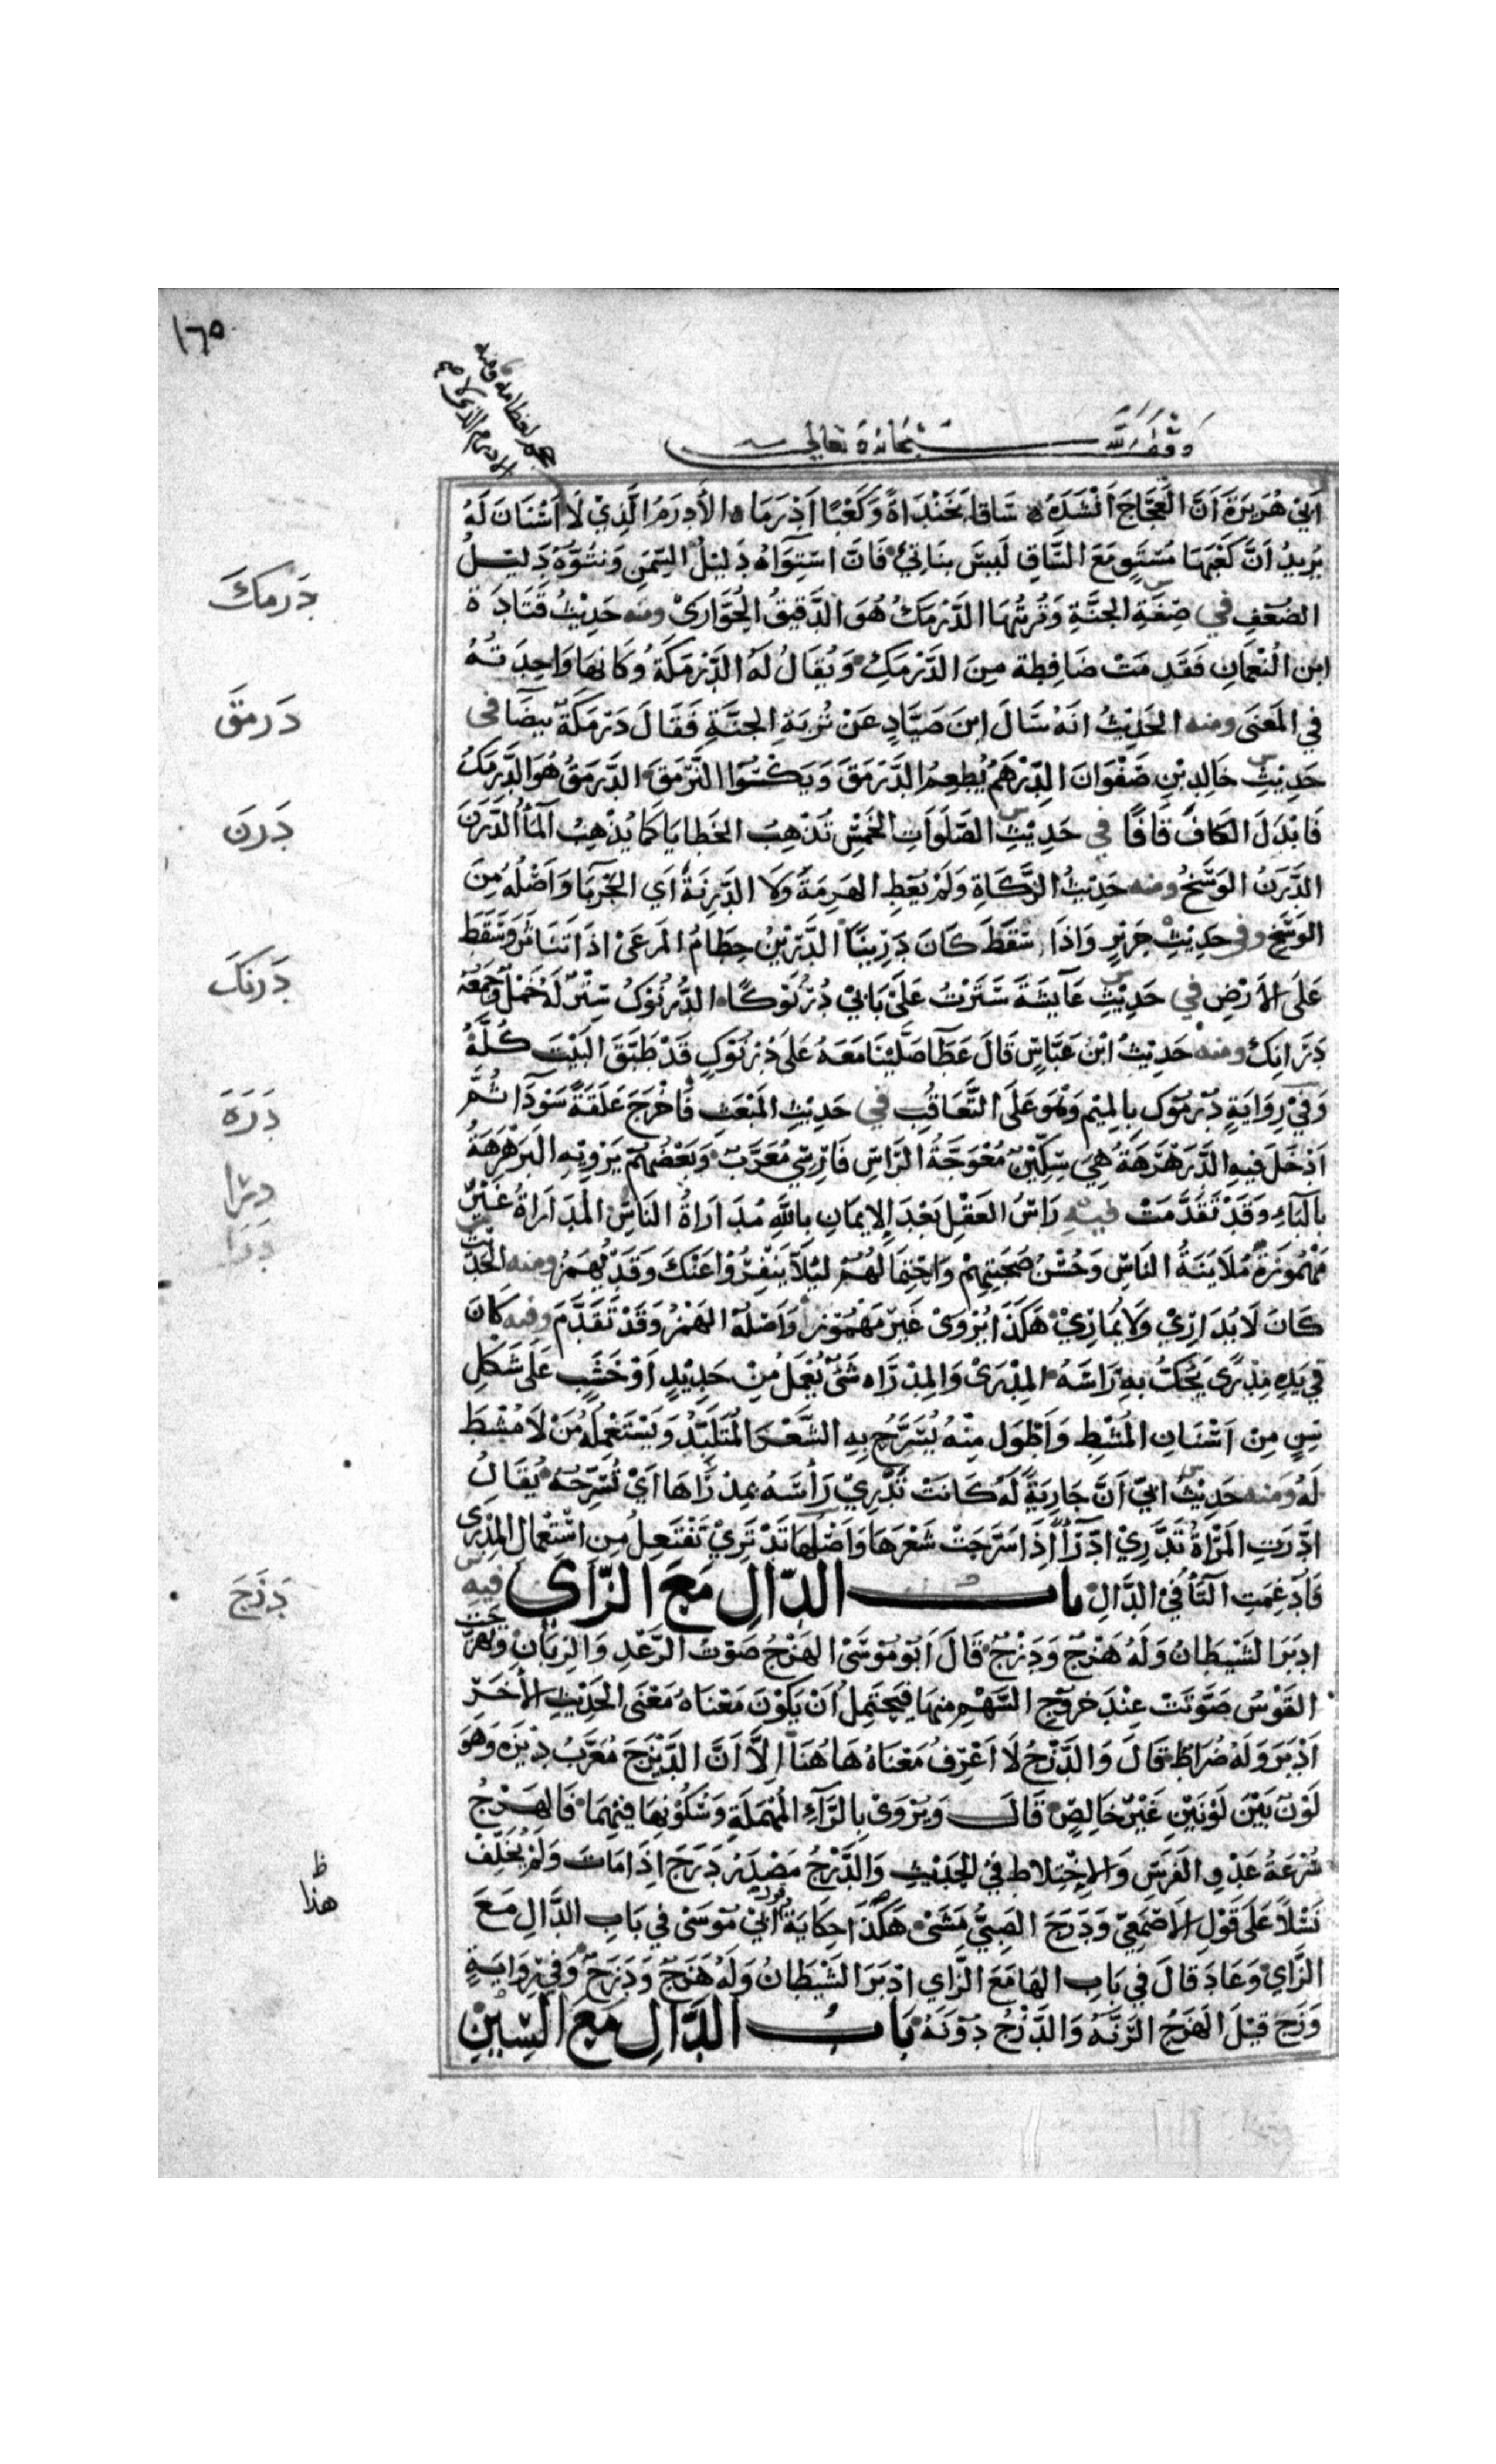 ١٦٥
وقف لله سبحانه وتعالى
الادرم الذي لا حجم لعظامه ومنه
أبي هُرَيْرَةَ أَنَّ الْعَجَّاجَ أَنْشَدَهُ سَاقًا بَخَنْدَاةً وَكَعْبًا أَدْرَمَا الأَدْرَمُ الَّذِيْ لَا أَسْنَانَ لَهُ
يُرِيْدُ أَنَّ كَعْبَهَا مُسْتَوٍ مَعَ السَّاقِ لَيْسَ بِنَاتِئٍ فَإِنَّ اسْتِوَاهُ دَلِيْلُ السِّمَنِ وَنُتُوَّهُ دَلِيْلُ
الضُّعْفِ في صِفَةِ الْجَنَّةِ وَتُرْبَتُهَا الدَّرْمَكُ هُوَ الدَّقِيْقُ الْحُوَّارَىْ ومنه حَدِيْثُ قَتَادَةَ
ابْنِ النُّعْمَانِ فَقَدِمَتْ ضَافِطَة مِنَ الدَّرْمَكِ وَيُقَالُ لَهُ الدَّرْمَكَةُ وَكَانَهَا وَاحِدَتُهُ
فِي الْمَعْنَى ومنه الْحَدِيْثُ أَنَّهُ سَأَلَ ابْنَ صَيَّادٍ عَنْ تُرْبَةِ الْجَنَّةِ فَقَالَ دَرْمَكَةٌ بَيْضَآ فى
حَدِيْثِ خَالِدِ بْنِ صَفْوَانَ الدِّرْهَمُ يُطْعِمُ الدَّرْمَقَ وَيَكْسُوْا النَّرْمَقَ الدَّرْمَقُ هُوَ الدَّرْمَكُ
فَابْدَلَ الْكَافَ قَافًا في حَدِيْثِ الصَّلَوَاتِ الْخَمْسِ تُذْهِبُ الْخَطَايَا كَمَا يُذْهِبُ الْمَآءُ الدَّرَنَ
الدَّرَنُ الْوَسَخُ ومنه حَدِيْثُ الزَّكَاةِ وَلَمْ يُعْطِ الْهَرِمَةَ وَلَا الدَّرِنَةَ أَيِ الْجَرْبَا وَأَصْلُهُ مِنَ
الْوَسَخِ وفي حَدِيْثِ جَرِيْرٍ وَإِذَا سَقَطَ كَانَ دَرِيْنًا الدَّرِيْنُ حِطَامُ الْمَرْعَىْ إِذَا تَنَاثَرَ وَسَقَطَ
عَلَى الأَرْضِ في حَدِيْثِ عَآيِشَةَ سَتَرْتُ عَلَىْ بَابِيْ دُرْنُوْكًا الدُّرْنُوْكُ سِتْرٌ لَهُ خَمْلٌ وَجَمْعُهُ
دَرَانِكُ ومنه حَدِيْثُ ابْنُ عَبَّاسٍ قَالَ عَطَآ صَلَّيْنَا مَعَهُ عَلَى دُرْنُوْكٍ قَدْ طَبَّقَ الْبَيْتَ كُلَّهُ
وَفِيْ رِوَايَةٍ دُرْمُوْكٍ بِالْمِيْمِ وَهُوَ عَلَى التَّعَاقُبِ في حَدِيْثِ الْمَبْعَثِ فَأَخْرَجَ عَلَقَةً سَوْدَآ ثُمَّ
أَدْخَلَ فِيْهِ الدَّرَهْرَهَةَ هِيَ سِكِّيْنٌ مُعْوَجَّةُ الرَّأْسِ فَارِسِيٌّ مُعَرَّبٌ وَبَعْضُهُمْ يَرْوِيْهِ الْبَرَهْرَهَةُ
بِالْبَاءِ وَقَدْ تَقَدَّمَتْ فيه رَأْسُ الْعَقْلِ بَعْدَ الإِيمَانِ بِاللَّهِ مُدَارَاةُ النَّاسِ الْمُدَارَاةُ غَيْرُ
مَهْمُوْزَةٍ مُلَايَنَةُ النَّاسِ وَحُسْنُ صُحْبَتِهِمْ وَاحْتِمَالُهُمْ لِئَلَّا يَنْفِرُوْا عَنْكَ وَقَدْ يُهْمَزُ ومنه الْحَدِيْثُ
كَانَ لَا يُدَارِيْ وَلَا يُمَارِيْ هَكَذَا يُرْوَىْ غَيْرَ مَهْمُوْزٍ وَأَصْلُهُ الْهَمْزُ وَقَدْ تَقَدَّمَ وفيه كَانَ
فِي يَدِهِ مِدْرًى يَحُكُّ بِهِ رَأْسَهُ الْمِدْرَىْ وَالْمِدْرَاه شَيْءٌ يُعْمَلُ مِنْ حَدِيْدٍ أَوْ خَشَبٍ عَلَى شَكْلِ
سِنٍّ مِنْ أَسْنَانِ الْمُشْطِ وَأَطْوَل مِنْهُ يُسَرَّحُ بِهِ الشَّعْرُ الْمُتَلَبِّدُ وَيَسْتَعْمِلُهُ مَنْ لَا مُشْطَ
لَهُ ومنه حَدِيْثُ أُبَيٍّ أَنَّ جَارِيَةً لَهُ كَانَتْ تَدَّرِيْ رَأْسَهُ بِمِدْرَاهَا أَيْ تُسَرِّحُهُ يُقَالُ
ادَّرَتِ الْمَرْأَةُ تَدَّرِيْ ادِّرَآءً إِذَا سَرَّحَتْ شَعْرَهَا وَأَصْلُهَا تَدْتَرِيْ تَفْتَعِلُ مِنِ اسْتِعْمَالِ الْمِدْرَى
فَأُدْغِمَتِ التَّآءُ فِي الدَّالِ بَابُ الدَّالِ مَعَ الزَّاي فيه
أَدْبَرَ الشَّيْطَانُ وَلَهُ هَزَجٌ وَدَزَجٌ قَالَ أَبُوْ مُوْسَىْ الْهَزَجُ صَوْتُ الرَّعْدِ وَالذِّبَّانِ وَتَهَزَّجَت
الْقَوْسُ صَوَّتَتْ عِنْدَ خُرُوْجِ السَّهْمِ مِنْهَا فَيَحْتَمِلُ أَنْ يَكُوْنَ مَعْنَاهُ مَعْنَى الْحَدِيْثِ الأَخَر
أَدْبَرَ وَلَهُ ضُرَاطٌ قَالَ وَالدَّزَجُ لَا أَعْرِفُ مَعْنَاهُ هَاهُنَا إِلَّا أَنَّ الدَّيْزَجَ مُعَرَّبُ دِيْزَه وَهُوَ
لَوْنٌ بَيْنَ لَوْنَيْنِ غَيْرُ خَالِصٍ قَالَ وَيُرْوَىْ بِالرَّاءِ الْمُهْمَلَةِ وَسُكُوْنِهَا فِيْهِمَا فَالْهَرْجُ
سُرْعَةُ عَدْوِ الْفَرَسِ وَالاِخْتِلَاطِ فِي الْحَدِيْثِ وَالدَّرْجُ مَصْدَرُ دَرَجَ إِذَا مَاتَ وَلَمْ يُخَلِّفْ
نَسْلًا عَلَى قَوْلِ الأَصْمَعِيِّ وَدَرَجَ الصَّبِيُّ مَشَىْ هَكَذَا حِكَايَةُ قول أَبِيْ مُوْسَىْ فِي بَابِ الدَّالِ مَعَ
الزَّاي وَعَادَ قَالَ فِي بَابِ الْهَا مَعَ الزَّاي أَدْبَرَ الشَّيْطَانُ وَلَهُ هَزَجٌ وَدَزَجٌ وَفِي رِوَايَةٍ
وَزَجٌ قِيْلَ الْهَزَجُ الرَّنَّةُ وَالدَّزَجُ دُوْنَهُ بَابُ الدَّالِ مَعَ السِّيْنِ
دَرمكَ
دَرمقَ
دَرنَ
دَرنكَ
دَرَهَ
درا
دَرَا
دَزَجَ
ظ
هذا